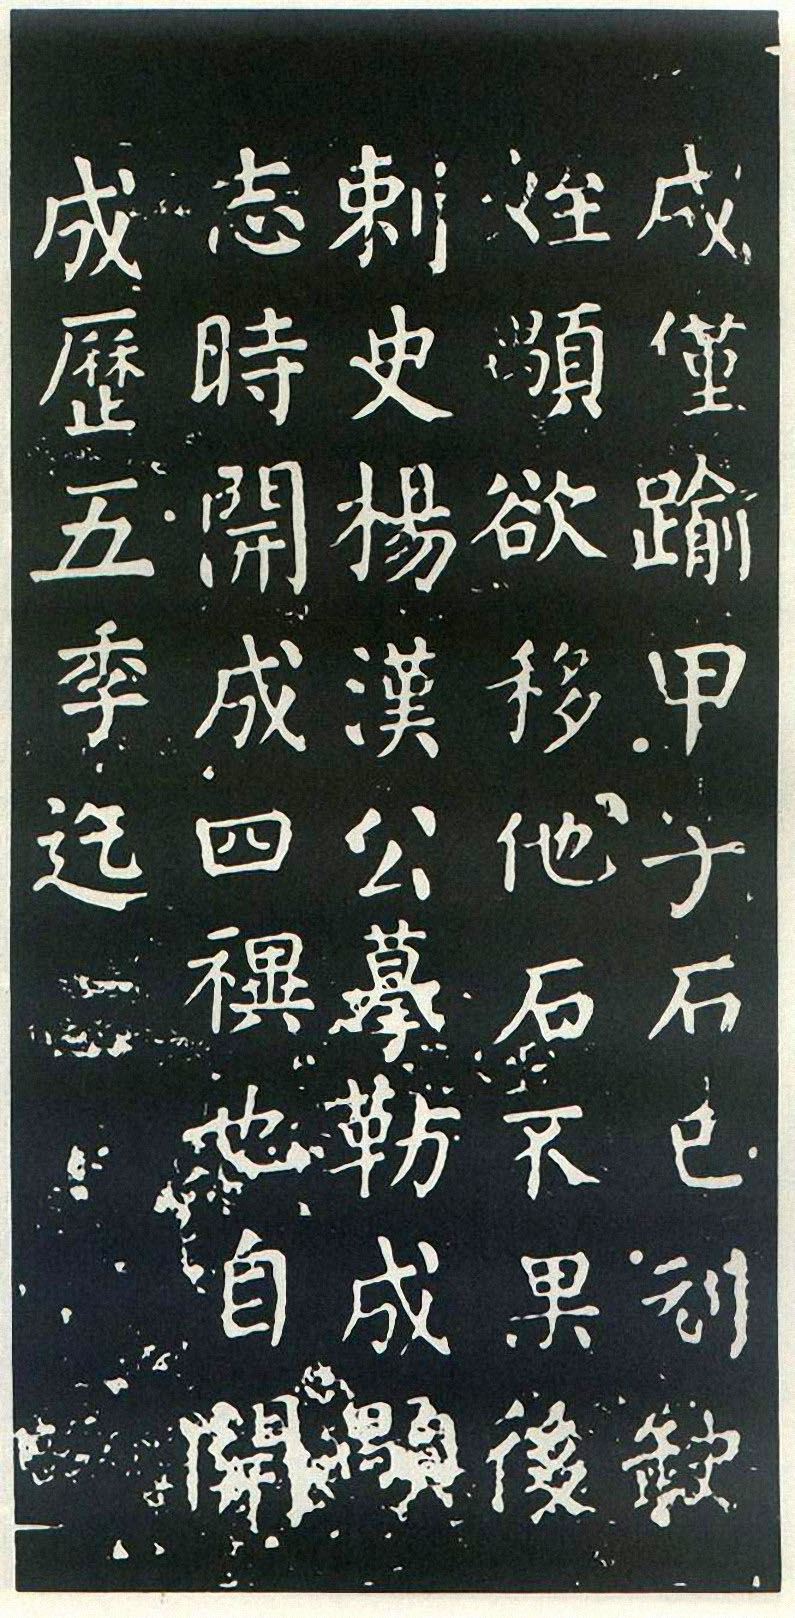 成僅踰甲子石已刓缺
顗欲移他石不果後
刺史楊漢公摹勒成顗
志時開成四禩也自開
成歷五季迄